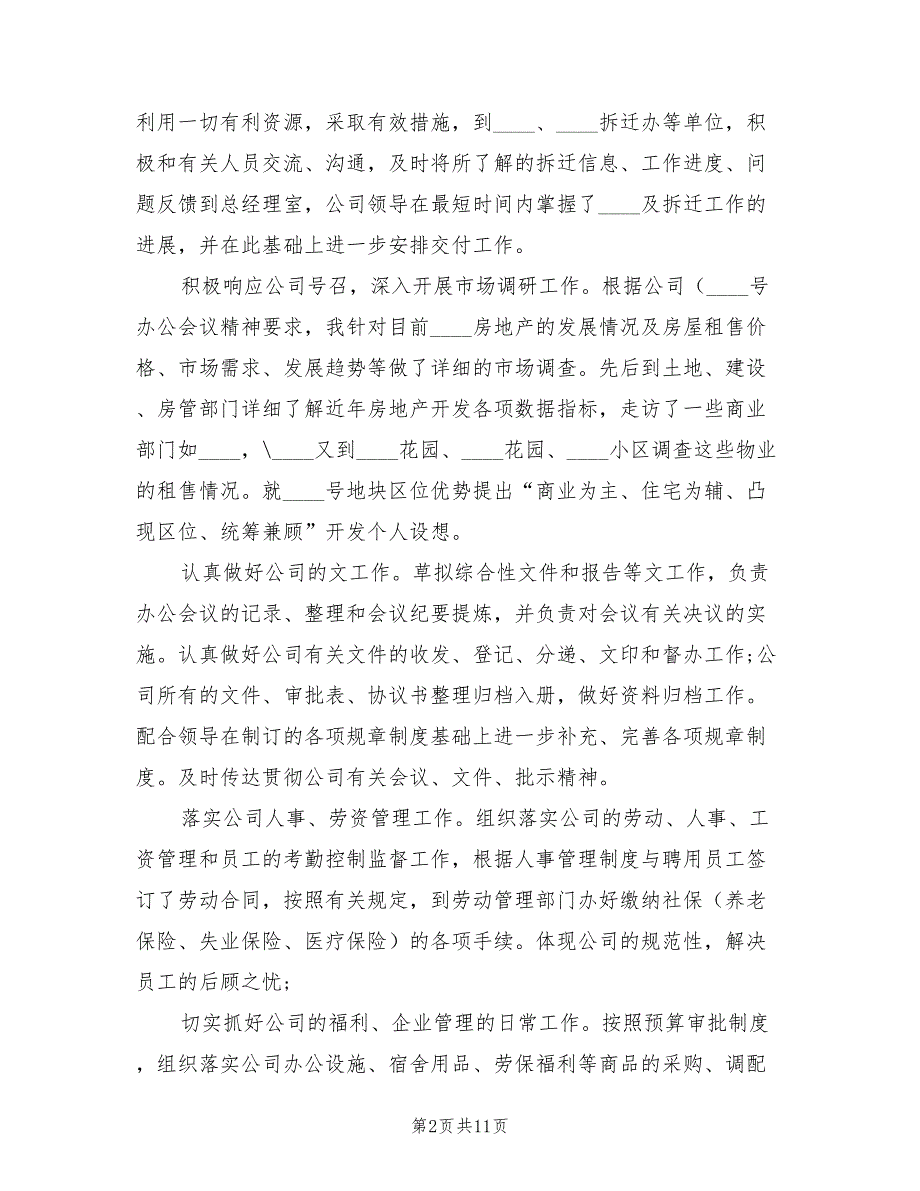 利用一切有利资源，采取有效措施，到____、____拆迁办等单位，积
极和有关人员交流、沟通，及时将所了解的拆迁信息、工作进度、问
题反馈到总经理室，公司领导在最短时间内掌握了____及拆迁工作的
进展，并在此基础上进一步安排交付工作。
积极响应公司号召，深入开展市场调研工作。根据公司（____号
办公会议精神要求，我针对目前____房地产的发展情况及房屋租售价
格、市场需求、发展趋势等做了详细的市场调查。先后到土地、建设
、房管部门详细了解近年房地产开发各项数据指标，走访了一些商业
部门如____，\____又到____花园、____花园、____小区调查这些物业
的租售情况。就____号地块区位优势提出“商业为主、住宅为辅、凸
现区位、统筹兼顾”开发个人设想。
认真做好公司的文工作。草拟综合性文件和报告等文工作，负责
办公会议的记录、整理和会议纪要提炼，并负责对会议有关决议的实
施。认真做好公司有关文件的收发、登记、分递、文印和督办工作;公
司所有的文件、审批表、协议书整理归档入册，做好资料归档工作。
配合领导在制订的各项规章制度基础上进一步补充、完善各项规章制
度。及时传达贯彻公司有关会议、文件、批示精神。
落实公司人事、劳资管理工作。组织落实公司的劳动、人事、工
资管理和员工的考勤控制监督工作，根据人事管理制度与聘用员工签
订了劳动合同，按照有关规定，到劳动管理部门办好缴纳社保（养老
保险、失业保险、医疗保险）的各项手续。体现公司的规范性，解决
员工的后顾之忧;
切实抓好公司的福利、企业管理的日常工作。按照预算审批制度
，组织落实公司办公设施、宿舍用品、劳保福利等商品的采购、调配
第2页共11页